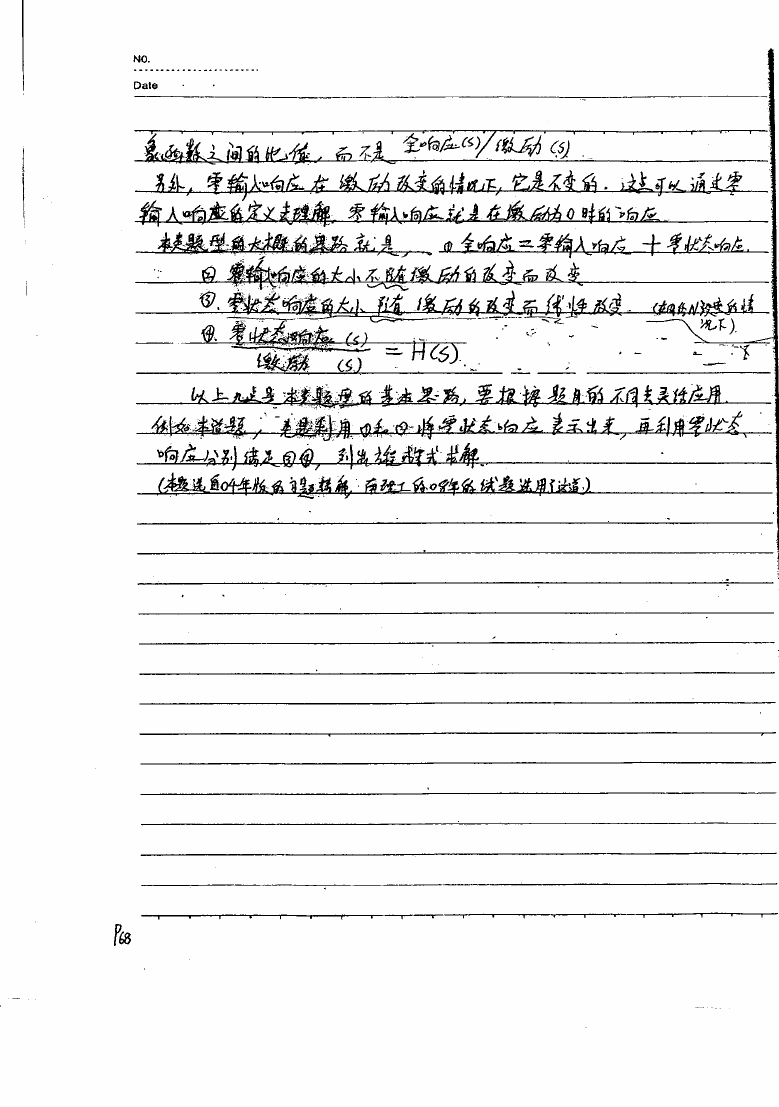 NO.
Date
象函数之间的比值，而不是 全响应(s)/激励(s)
另外，零输入响应在激励改变的情况下，它是不变的．这点可以通过零
输入响应的定义去理解．零输入响应就是在激励为0时的响应
本类题型的大概的思路就是，、①全响应＝零输入响应＋零状态响应．
② 零输入响应的大小不随激励的改变而改变
③．零状态响应的大小随激励的改变而线性改变．(在H(s)不改变的情
况下)
④．零状态响应(s)/激励(s) = H(s)
以上几点是本类题型的基本思路，要根据题目的不同去灵活应用．
例如本道题，先是利用①和②将零状态响应表示出来，再利用零状态
响应分别满足③④，列出方程式求解．
(本题选自04年版的习题精解，南理工的08年的试题选用了这道)
P68